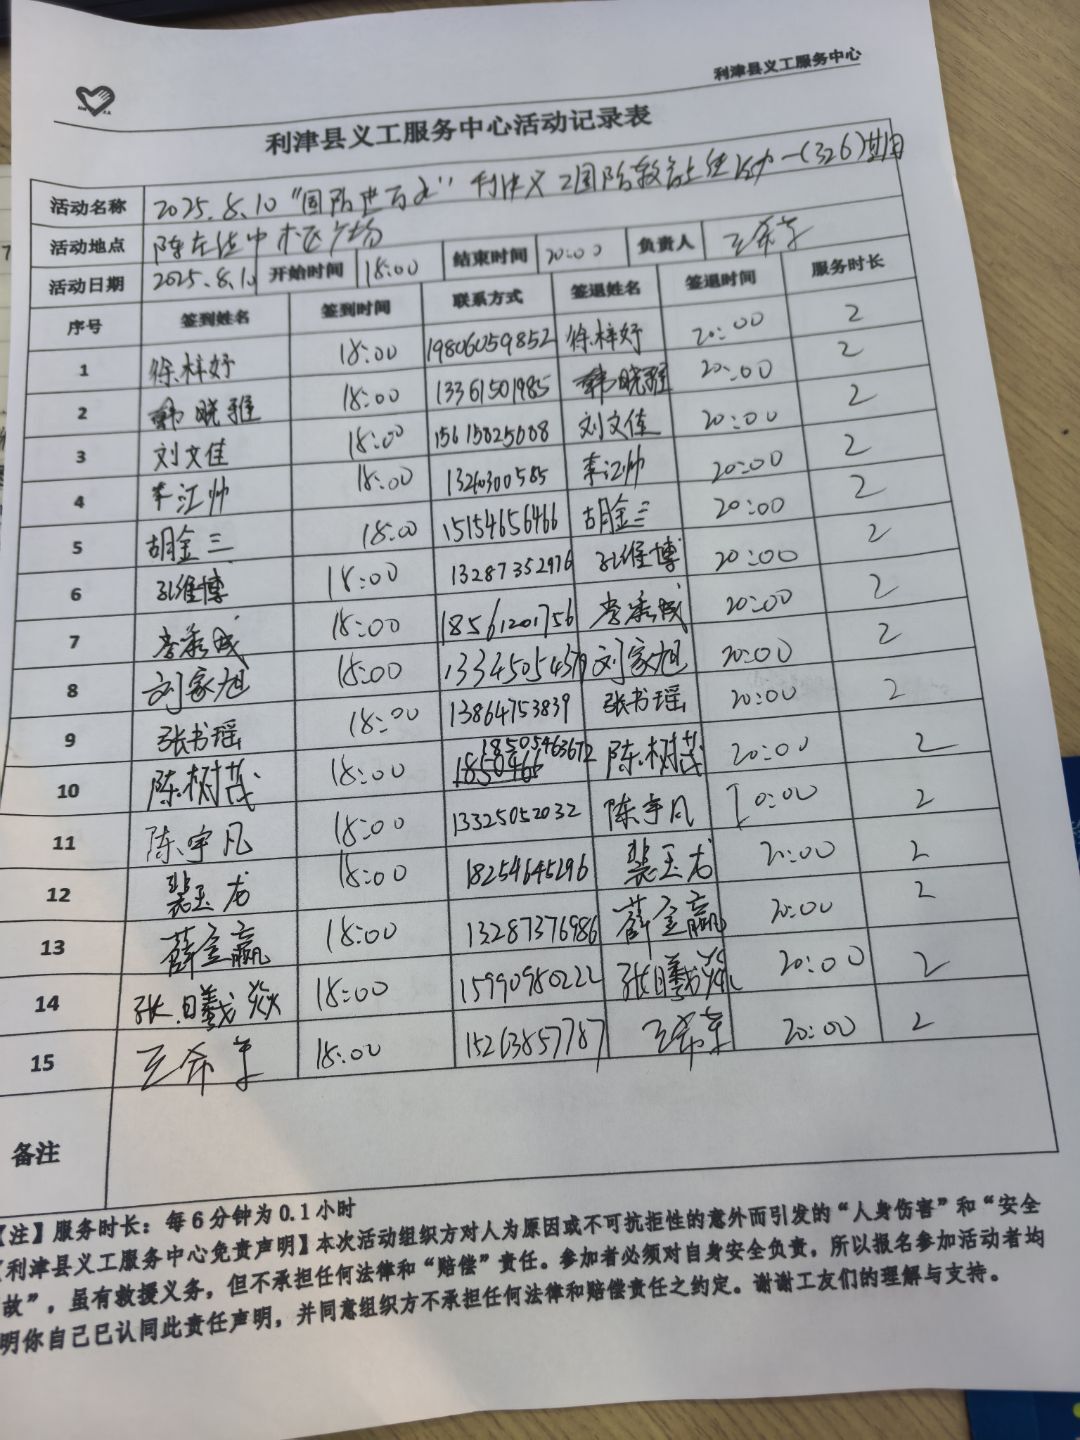 利津县义工服务中心
利津县义工服务中心活动记录表
活动名称 2025.8.10 利津义工 (326)
活动地点 广场
活动日期 2025.8.10 开始时间 18:00 结束时间 20:00 负责人
序号 签到姓名 签到时间 联系方式 签退姓名 签退时间 服务时长
1 徐梓妤 18:00 19806059852 徐梓妤 20:00 2
2 韩晓雅 18:00 13361501985 韩晓雅 20:00 2
3 刘文佳 18:00 刘文佳 20:00 2
4 李江帅 18:00 李江帅 20:00 2
5 胡金三 18:00 15154656466 胡金三 20:00 2
6 孔维博 18:00 13287352976 孔维博 20:00 2
7 18:00 18561201756 20:00 2
8 刘家旭 18:00 刘家旭 20:00 2
9 张书瑶 18:00 13864753839 张书瑶 20:00 2
10 陈树茂 18:00 18505463672 陈树茂 20:00 2
11 陈宇凡 18:00 13325052032 陈宇凡 20:00 2
12 裴玉龙 18:00 18254645296 裴玉龙 20:00 2
13 薛金赢 18:00 13287376986 薛金赢 20:00 2
14 张曦焱 18:00 15990980222 张曦焱 20:00 2
15 18:00 15263857787 20:00 2
备注
【注】服务时长：每6分钟为0.1小时
利津县义工服务中心免责声明】本次活动组织方对人为原因或不可抗拒性的意外而引发的“人身伤害”和“安全
故”，虽有救援义务，但不承担任何法律和“赔偿”责任。参加者必须对自身安全负责，所以报名参加活动者均
明你自己已认同此责任声明，并同意组织方不承担任何法律和赔偿责任之约定。谢谢工友们的理解与支持。